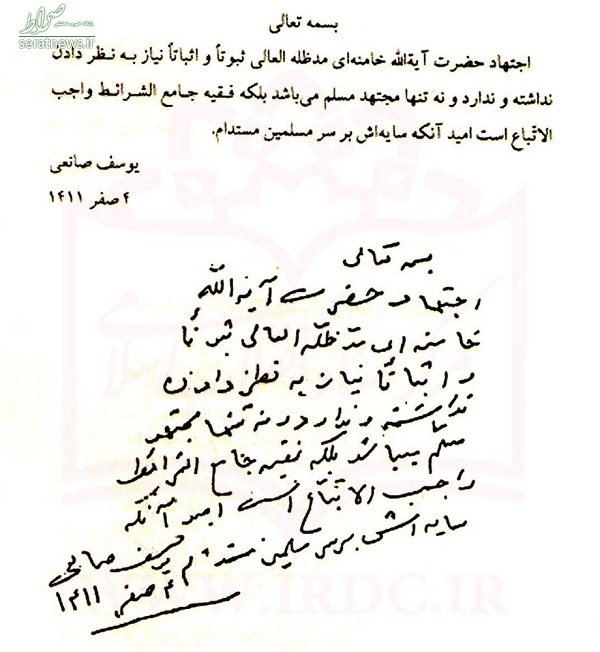 صراط
seratnews.ir
بسمه تعالی
اجتهاد حضرت آیةالله خامنه‌ای مدظله العالی ثبوتاً و اثباتاً نیاز به نظر دادن
نداشته و ندارد و نه تنها مجتهد مسلم می‌باشد بلکه فقیه جامع الشرائط واجب
الاتّباع است امید آنکه سایه‌اش بر سر مسلمین مستدام.
یوسف صانعی
۴ صفر ۱۴۱۱
بسمه تعالی
اجتهاد حضرت آیة الله
خامنه ای مدظله العالی ثبوتاً
و اثباتاً نیاز به نظر دادن
نداشته و ندارد و نه تنها مجتهد
مسلم میباشد بلکه فقیه جامع الشرائط
واجب الاتّباع است امید آنکه
سایه اش بر سر مسلمین مستدام یوسف صانعی
۴ صفر ۱۴۱۱
WWW.IRDC.IR